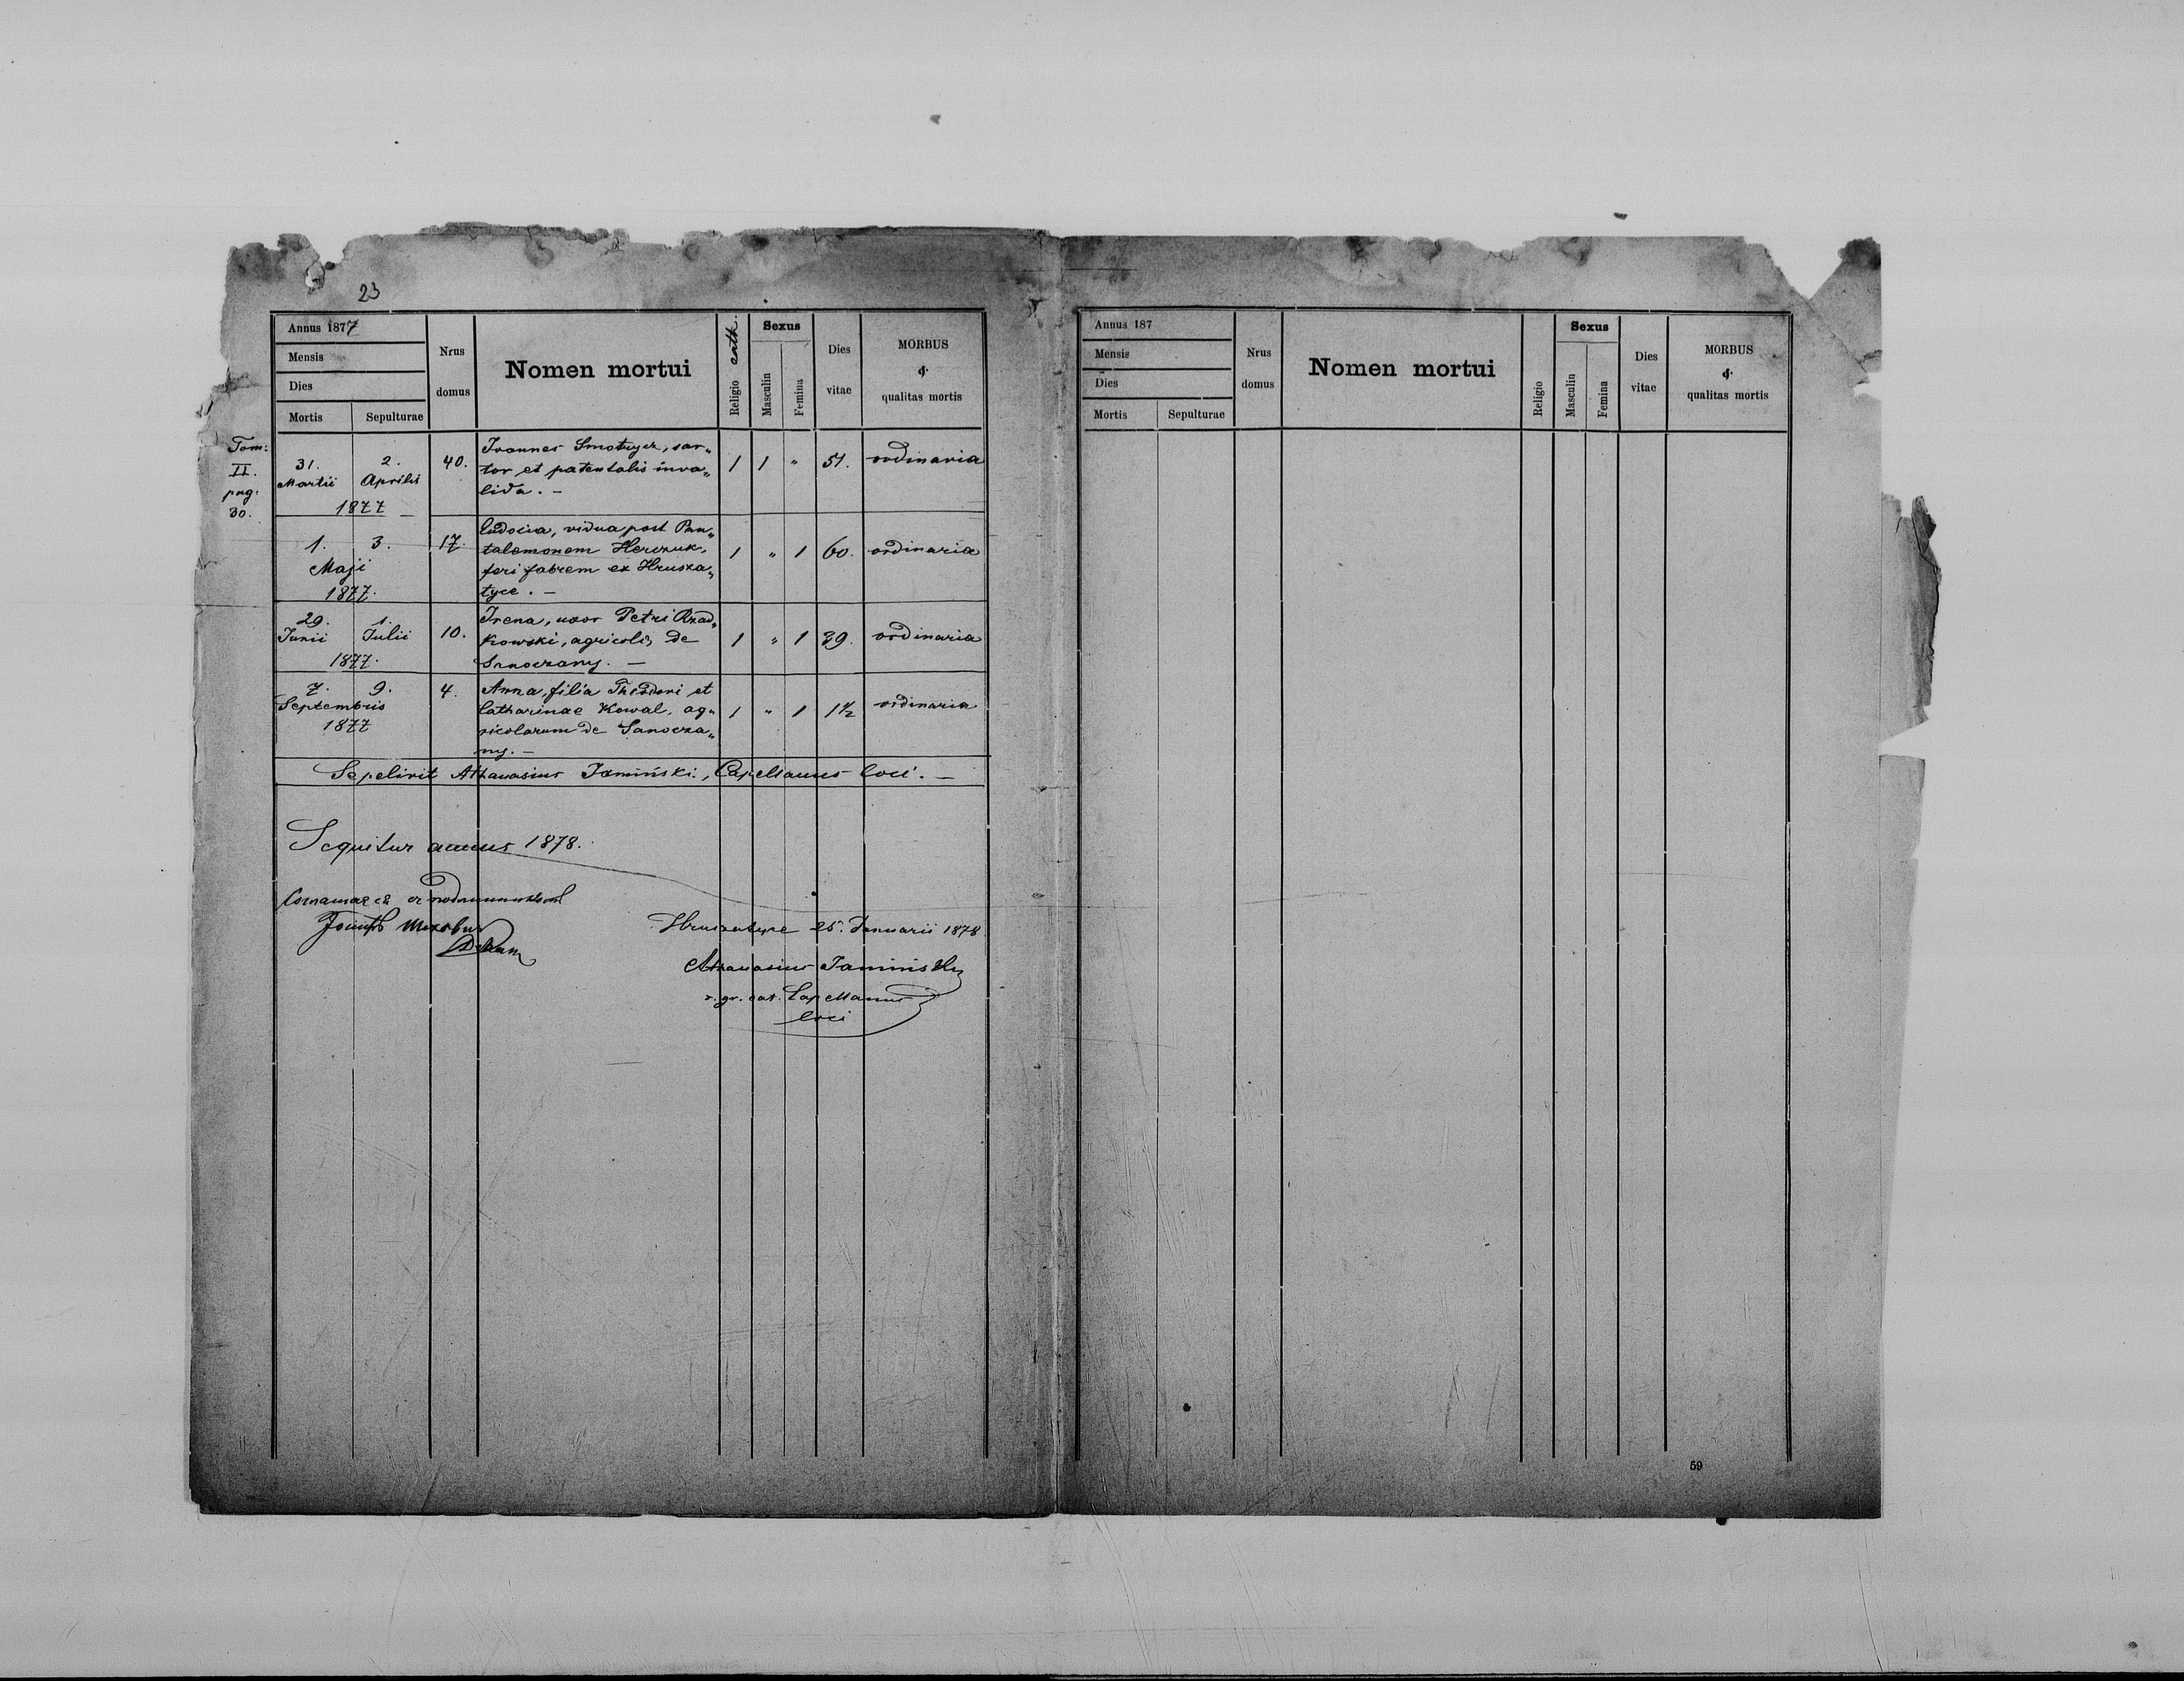 23
Annus 1877
Mensis
Dies
Mortis Sepulturae
Nrus domus
Nomen mortui
Religio cath.
Sexus
Masculin
Femina
Dies vitae
MORBUS
&
qualitas mortis
Tom:
II.
pag:
30.
31. 2. 40. Ioannes Smotrycz, sar„ 1 1 " 51. ordinaria
Martii Aprilis tor et patentalis inva„
1877 lida. —
1. 3. 17. Eudocia, vidua post Pan„ 1 " 1 60. ordinaria
Maji talemonem Herczuk,
1877. feri fabrem ex Hrusza„
tyce. —
29. 1. 10. Irena, uxor Petri Rząd„ 1 " 1 39. ordinaria
Junii Julii kowski, agricolis de
1877. Sanoczany. —
7. 9. 4. Anna, filia Theodori et 1 " 1 1½ ordinaria
Septembris Catharinae Kowal, ag„
1877 ricolarum de Sanocza„
ny. —
Sepelivit Athanasius Jamiński, Capellanus loci. —
Sequitur annus 1878.
Hruszatyce 25. Januarii 1878
Athanasius Jamiński
r. gr. cat. Capellanus
loci
Annus 187
Mensis
Dies
Mortis Sepulturae
Nrus domus
Nomen mortui
Religio
Sexus
Masculin
Femina
Dies vitae
MORBUS
&
qualitas mortis
59